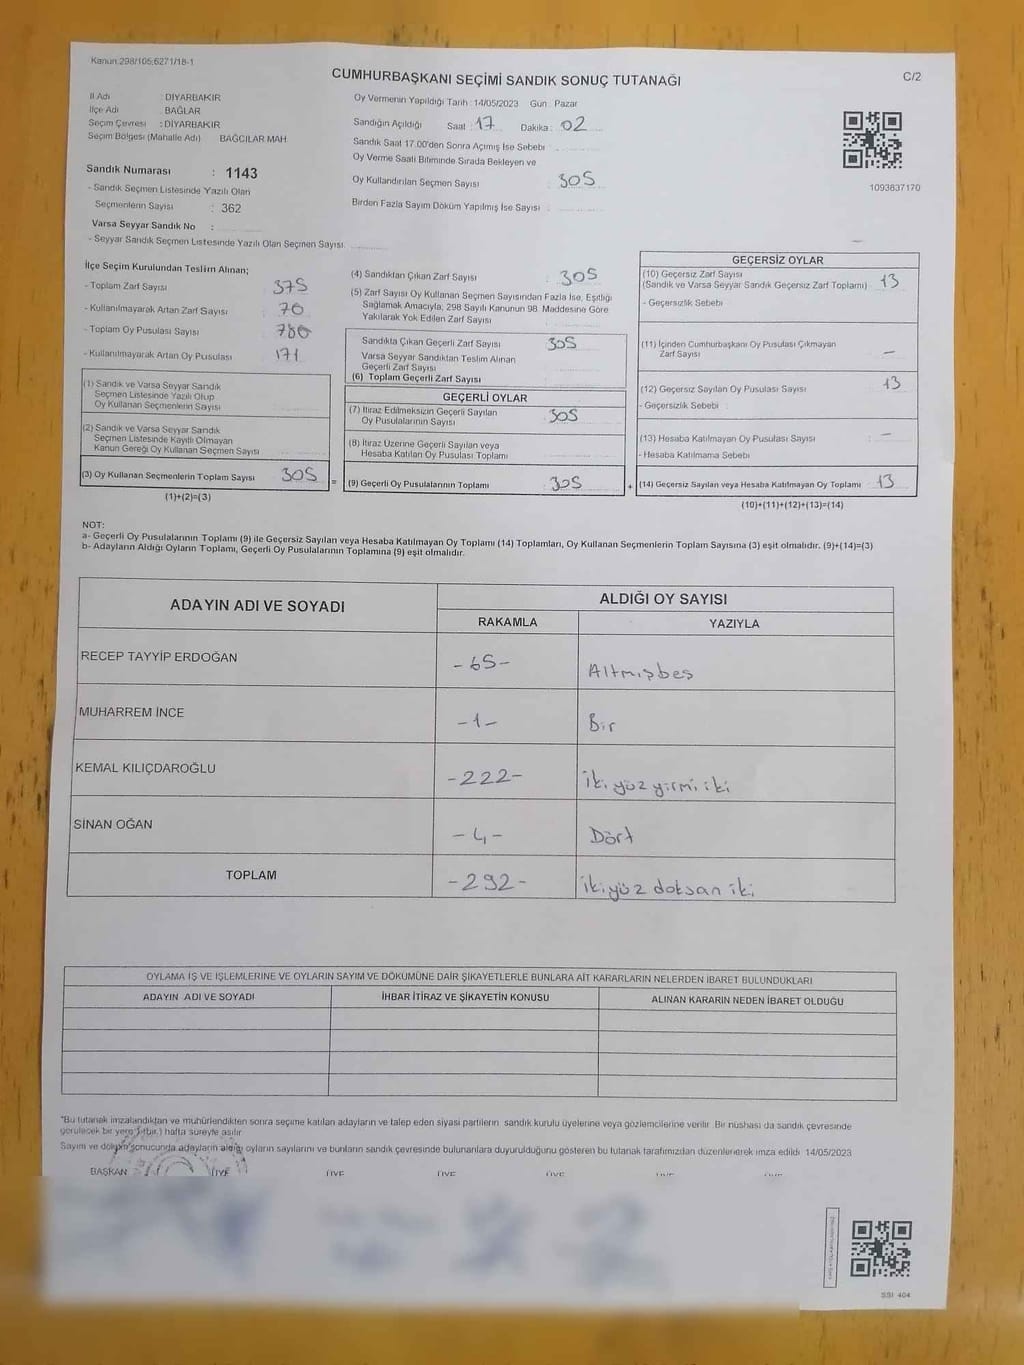 Kanun.298/105,6271/18-1
CUMHURBAŞKANI SEÇİMİ SANDIK SONUÇ TUTANAĞI
C/2
İl Adı : DİYARBAKIR
İlçe Adı : BAĞLAR
Seçim Çevresi : DİYARBAKIR
Seçim Bölgesi (Mahalle Adı) BAĞCILAR MAH
Sandık Numarası : 1143
- Sandık Seçmen Listesinde Yazılı Olan
Seçmenlerin Sayısı : 362
Varsa Seyyar Sandık No :
- Seyyar Sandık Seçmen Listesinde Yazılı Olan Seçmen Sayısı:
Oy Vermenin Yapıldığı Tarih : 14/05/2023 Gün : Pazar
Sandığın Açıldığı Saat : 17 Dakika : 02
Sandık Saat 17.00'den Sonra Açımış İse Sebebi :
Oy Verme Saati Bitiminde Sırada Bekleyen ve
Oy Kullandırılan Seçmen Sayısı 305
Birden Fazla Sayım Döküm Yapılmış İse Sayısı :
1093837170
İlçe Seçim Kurulundan Teslim Alınan;
- Toplam Zarf Sayısı 375
- Kullanılmayarak Artan Zarf Sayısı 70
- Toplam Oy Pusulası Sayısı
- Kullanılmayarak Artan Oy Pusulası 171
(1) Sandık ve Varsa Seyyar Sandık
Seçmen Listesinde Yazılı Olup
Oy Kullanan Seçmenlerin Sayısı
(2) Sandık ve Varsa Seyyar Sandık
Seçmen Listesinde Kayıtlı Olmayan
Kanun Gereği Oy Kullanan Seçmen Sayısı
(3) Oy Kullanan Seçmenlerin Toplam Sayısı 305
(1)+(2)=(3)
=
(4) Sandıktan Çıkan Zarf Sayısı : 305
(5) Zarf Sayısı Oy Kullanan Seçmen Sayısından Fazla İse, Eşitliği
Sağlamak Amacıyla; 298 Sayılı Kanunun 98. Maddesine Göre
Yakılarak Yok Edilen Zarf Sayısı
Sandıkta Çıkan Geçerli Zarf Sayısı 305
Varsa Seyyar Sandıktan Teslim Alınan
Geçerli Zarf Sayısı
(6) Toplam Geçerli Zarf Sayısı
GEÇERLİ OYLAR
(7) İtiraz Edilmeksizin Geçerli Sayılan
Oy Pusulalarının Sayısı 305
(8) İtiraz Üzerine Geçerli Sayılan veya
Hesaba Katılan Oy Pusulası Toplamı
(9) Geçerli Oy Pusulalarının Toplamı 305
+
GEÇERSİZ OYLAR
(10) Geçersiz Zarf Sayısı
(Sandık ve Varsa Seyyar Sandık Geçersiz Zarf Toplamı) 13
- Geçersizlik Sebebi :
(11) İçinden Cumhurbaşkanı Oy Pusulası Çıkmayan
Zarf Sayısı -
(12) Geçersiz Sayılan Oy Pusulası Sayısı 13
- Geçersizlik Sebebi :
(13) Hesaba Katılmayan Oy Pusulası Sayısı : -
- Hesaba Katılmama Sebebi
(14) Geçersiz Sayılan veya Hesaba Katılmayan Oy Toplamı 13
(10)+(11)+(12)+(13)=(14)
NOT:
a- Geçerli Oy Pusulalarının Toplamı (9) ile Geçersiz Sayılan veya Hesaba Katılmayan Oy Toplamı (14) Toplamları, Oy Kullanan Seçmenlerin Toplam Sayısına (3) eşit olmalıdır. (9)+(14)=(3)
b- Adayların Aldığı Oyların Toplamı, Geçerli Oy Pusulalarının Toplamına (9) eşit olmalıdır.
ADAYIN ADI VE SOYADI
ALDIĞI OY SAYISI
RAKAMLA YAZIYLA
RECEP TAYYİP ERDOĞAN -65- Altmışbeş
MUHARREM İNCE -1- Bir
KEMAL KILIÇDAROĞLU -222- İki yüz yirmi iki
SİNAN OĞAN -4- Dört
TOPLAM -292- iki yüz doksan iki
OYLAMA İŞ VE İŞLEMLERİNE VE OYLARIN SAYIM VE DÖKÜMÜNE DAİR ŞİKAYETLERLE BUNLARA AİT KARARLARIN NELERDEN İBARET BULUNDUKLARI
ADAYIN ADI VE SOYADI İHBAR İTİRAZ VE ŞİKAYETİN KONUSU ALINAN KARARIN NEDEN İBARET OLDUĞU
*Bu tutanak imzalandıktan ve mühürlendikten sonra seçime katılan adayların ve talep eden siyasi partilerin sandık kurulu üyelerine veya gözlemcilerine verilir. Bir nüshası da sandık çevresinde
görülecek bir yere 1 (bir.) hafta süreyle asılır
Sayım ve döküm sonucunda adayların aldığı oyların sayılarını ve bunların sandık çevresinde bulunanlara duyurulduğunu gösteren bu tutanak tarafımızdan düzenlenerek imza edildi. 14/05/2023
BAŞKAN ÜYE ÜYE ÜYE ÜYE ÜYE ÜYE
SSI: 404